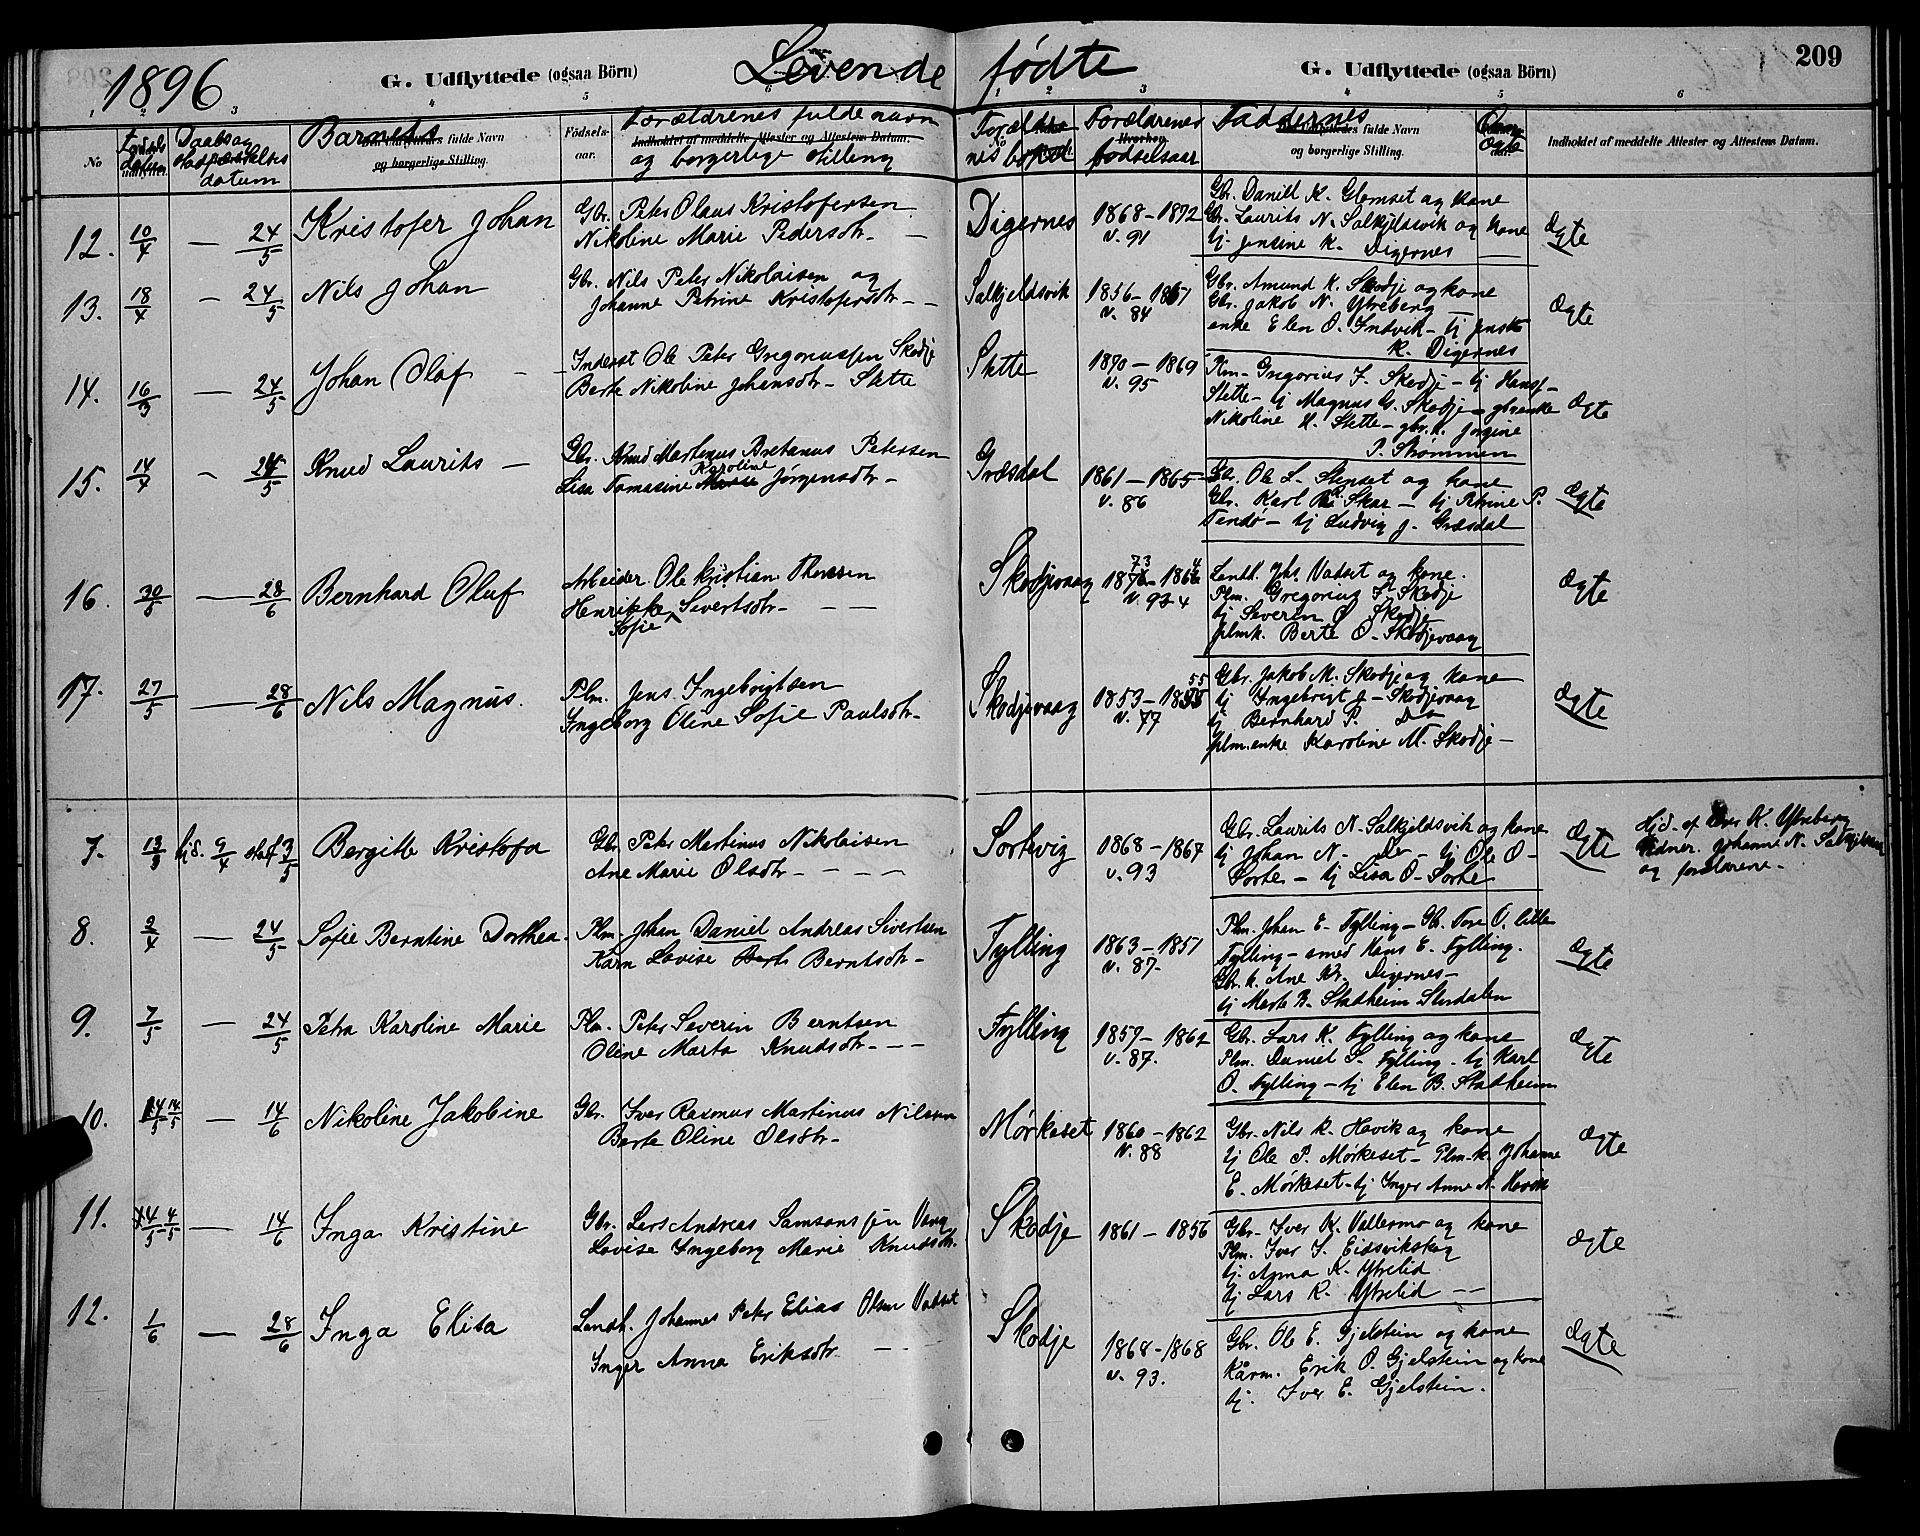 1896 G. Udflyttede (ogsaa Börn) Levende fødte G. Udflyttede (ogsaa Börn) 209
1 2 3 4 5 6 1 2 3 4 5 6
No
Daabs og
datum
Barnets fulde Navn
og borgerlige Stilling.
Födsels-
aar.
Forældrenes fulde navn
Indholdet af meddelte Attester og Attestens Datum.
og borgerlige stilling
Forældre
nes bopæl
Forælarenes
fødselsaar
Faddernes fulde Navn
og borgerlige Stilling.
Ægte
Indholdet af meddelte Attester og Attestens Datum.
12. 10/4 — 24/5 Kristofer Johan
Gbr. Peter Olaus Kristofersen
Nikoline Marie Pedersdtr. —
Digernes 1868-1872
v. 91
Gbr. Daniel K. Glomset og kone
Gbr. Laurits N. Salkjelsvik og kone
tj. Jensine K. Digernes —
Ægte
13. 18/4 — 24/5 Nils Johan
Gbr. Nils Peter Nikolaisen og
Johanne Petrine Kristofersdtr. —
Salkjeldsvik 1856-1861
v. 84
Gbr. Amund K. Skodje og kone
Gbr. Jakob N. Ytreberg —
enke Elen O. Indvik - tj
K. Digernes
Ægte
14. 16/3 — 24/5 Johan Olaf
Inderst Ole Peter Gregoriussen Skodje
Berte Nikoline Johansdtr. Stette
Stette 1870-1869
v. 95
Gregorius I. Skodje - tj Hans J-
Stette - tj Magnus G. Skodje - gbrenke
Nikoline K. Stette - gbr.k. Jorgine
P. Strømmen
Ægte
15. 14/4 - 24/5 Knud Laurits —
Gbr. Knud Martinus Bretanus Petersen
Lisa Tomasine Karoline Jørgensdtr. -
Græsdal 1861-1865
v. 86
Gbr. Ole L. Stenset og kone
Gbr. Karl R. Skar - tj Petrine P.
Tendø - tj Ludvig J. Græsdal
Ægte
16. 30/5 — 28/6 Bernhard Oluf
Arbeider Ole Kristian
Henrikke Sofie Sivertsdtr. — —
Skodjevaag
Landh. Joh. Vadset og kone.
Plm. Gregorius I. Skodje
tj Severin O Skodje
plmk. Berte O. Skodjevaag
Ægte
17. 27/5 — 28/6 Nils Magnus.
Plm. Jens Ingebrigtsen
Ingeborg Oline Sofie Paulsdtr.
Skodjevaag 1853-1855
v. 77
Gbr. Jakob M. Skodje og kone
tj Ingebrigt J - Skodjevaag
tj Bernhard P. Do
plm.enke Karoline M. Skodje -
Ægte
7. 13/3 hjd. 9/4 stadf. 3/5 Bergitte Kristofa
Gbr. Peter Martinus Nikolaisen
Ane Marie Olsdtr. — — —
Sortevig 1868-1867
v. 93
Gbr. Laurits N. Salkjeldsvik og kone
tj Johan N. - Do - tj Ole O -
Sorte - tj Lisa O - Sorte
Ægte
Hjd. af Iver K. Ytreberg
Vidner. Johanne N.
og forælarene.
8. 2/4 — 24/5 Sofie Berntine Dorthea.
Plm. Johan Daniel Andreas Sivertsen
Karn Lovise Berntsdtr -
Fylling 1863-1857
v. 87.
Plm. Johan E. Fylling - Gbr. Tore O. lille
Fylling - smed Hans E. Fylling.
Gbr.k. Ane Kr. Digernes -
tj Marte B. Stadheim
Ægte
9. 7/5 — 24/5 Petra Karoline Marie
Plm. Peter Severin Berntsen
Oline Marta Knudsdtr. — —
Fylling 1857-1862
v. 87.
Gbr. Lars K. Fylling og kone
Plm. Daniel S. Fylling - tj Karl
O. Fylling - tj Elen B. Stadheim
Ægte
10. 14/5 — 14/6 Nikoline Jakobine
Gbr. Iver Rasmus Martinus Nilssen
Berte Oline Olsdtr.
Mørkeset 1860-1862
v. 88
Gbr. Nils K. Hovik og kone
tj Ole P. Mørkeset - Plm.k. Johanne
E. Mørkeset - tj Inger Anne N. Hovik
Ægte
11. 4/5 — 14/6 Inga Kristine
Gbr. Lars Andreas Samsonssen Vaag
Lovise Ingeborg Marie Knudsdtr.
Skodje 1861-1856
Gbr. Iver K. Vallermo og kone
Plm. Iver I. Eidsvikskog
tj. Anna K. Ytrelid
tj Lars K. Ytrelid —
Ægte
12. 1/6 — 28/6 Inga Elisa
Landh. Johannes Peter Elias Olsen Vadset
Inger Anna Eriksdtr. — —
Skodje 1868-1868
v. 93.
Gbr. Ole E. Gjelstein og kone
Kårm. Erik O. Gjelstein og kone
tj. Iver E. Gjelstein.
Ægte